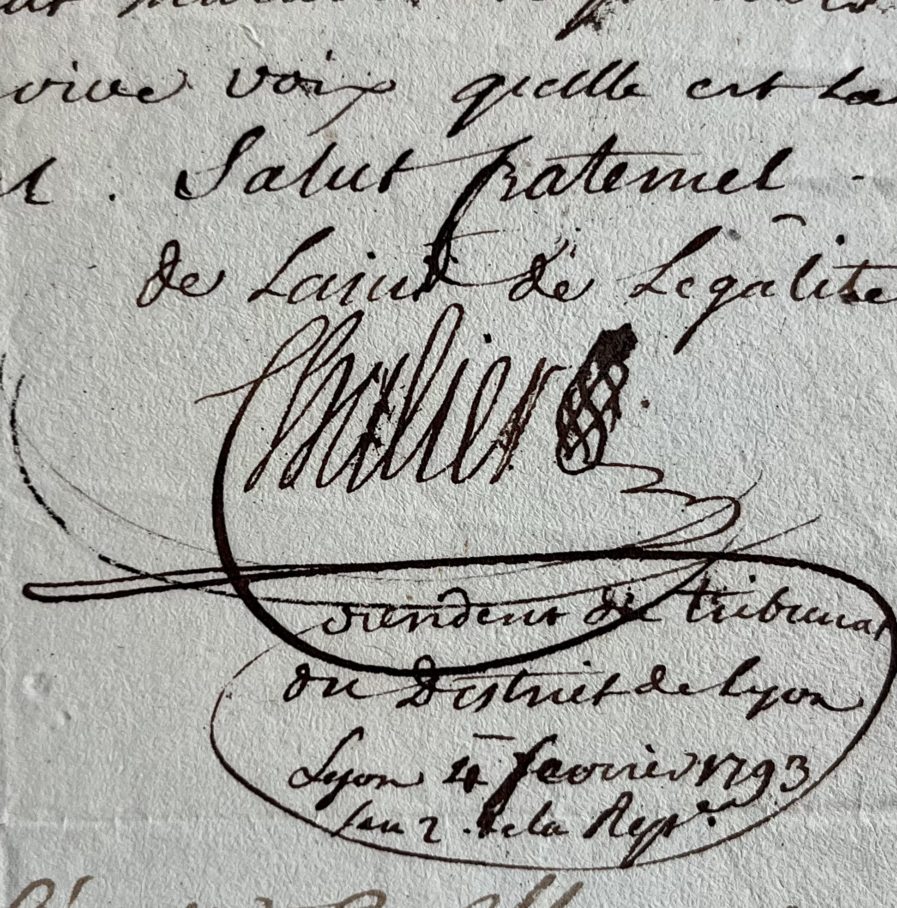 vive voix quelle est la
. Salut fraternel .
de Laint de Legâlite
Chalier
du tribunal
du District de Lyon
Lyon 4 fevrier 1793
lan 2 . de la Repe.